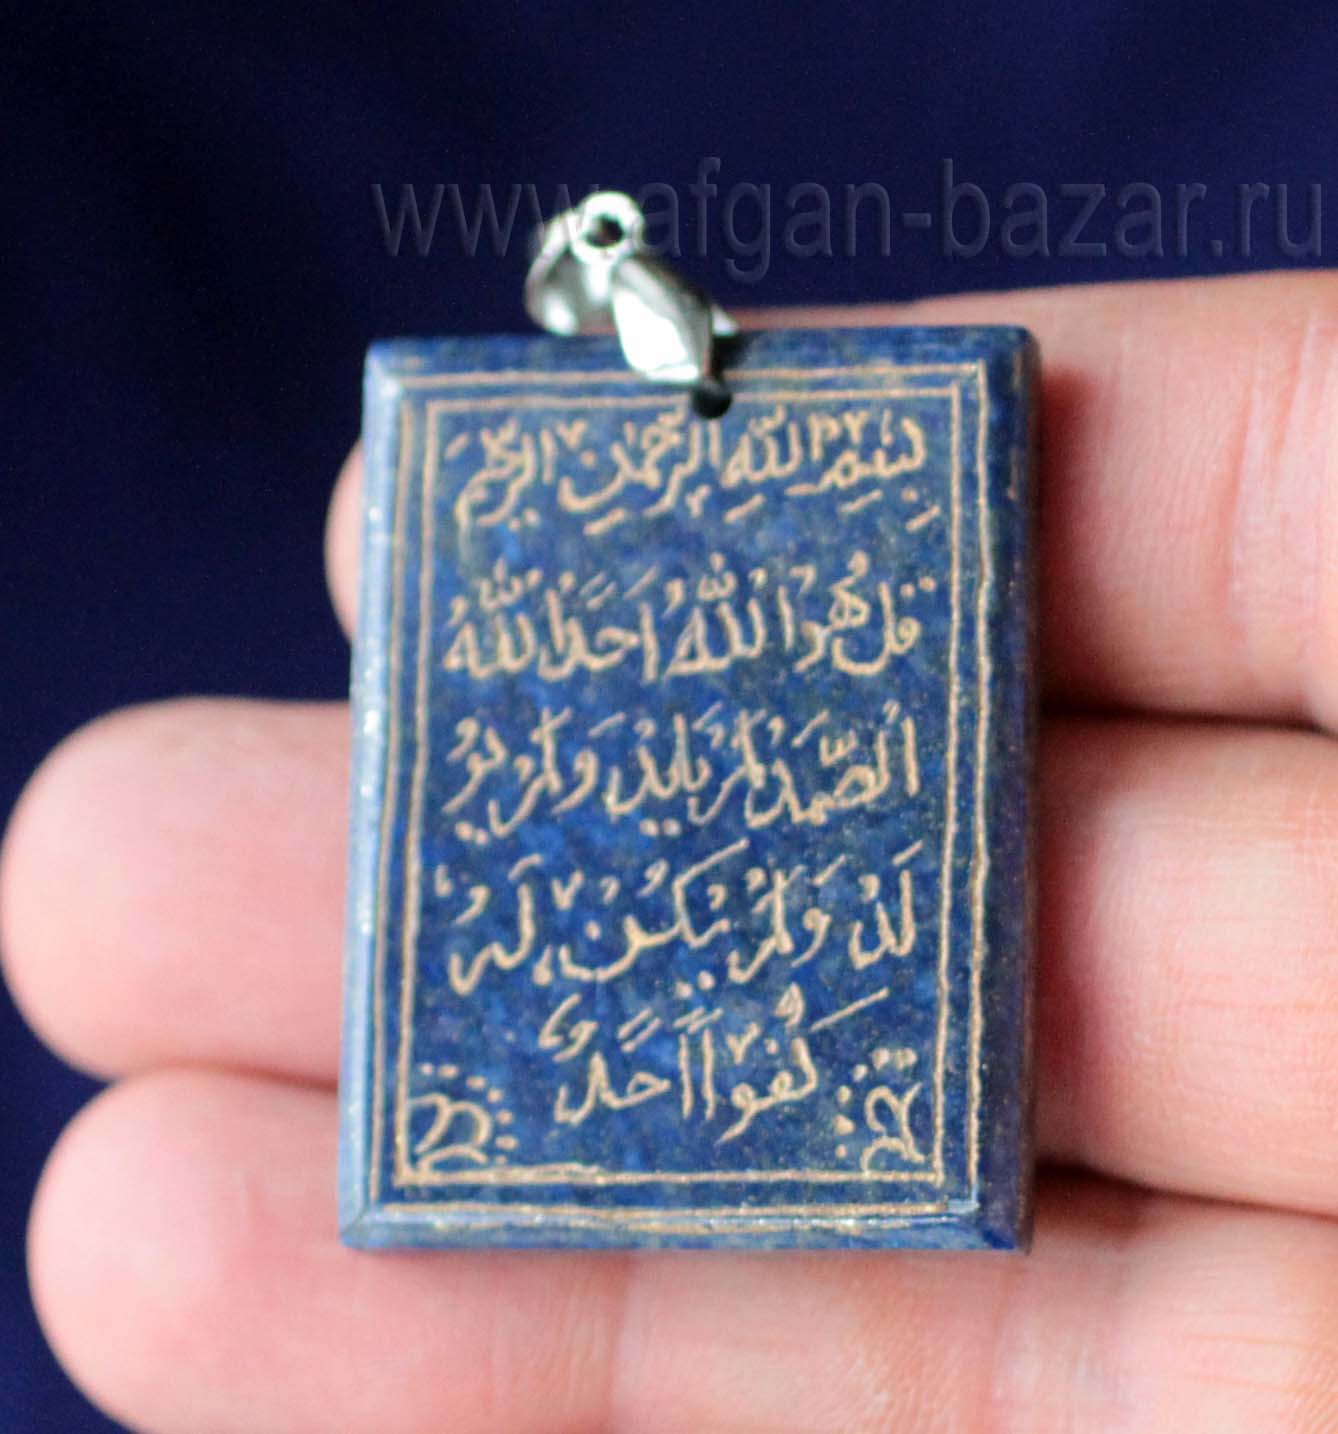 www.afgan-bazar.ru
بِسْمِ اللّٰهِ الرَّحْمٰنِ الرَّحِیْمِ
قُلْ هُوَ اللّٰهُ اَحَدٌ اَللّٰهُ
الصَّمَدُ لَمْ یَلِدْ وَلَمْ یُوْ
لَدْ وَلَمْ یَکُنْ لَهُ
کُفُوًا اَحَدٌ